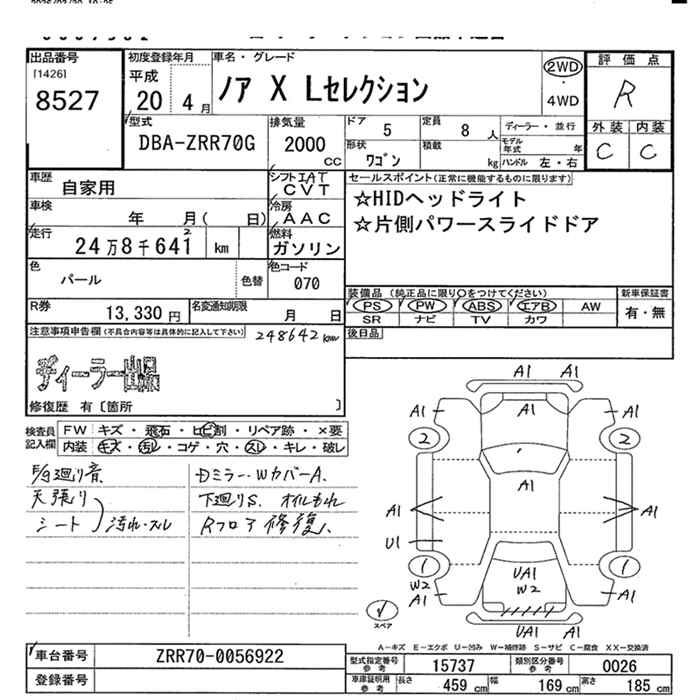 2026/02/20 10:25
出品番号
[1426]
8527
初度登録年月
平成
20 4月
車名・グレード
ノア X Lセレクション
2WD
・
4WD
評価点
R
外装 内装
C C
型式
DBA-ZRR70G
排気量
2000
CC
ドア 5
定員 8 人
ディーラー・並行
形状 ワゴン
積載 kg
モデル年式 年
ハンドル 左・右
車歴
自家用
シフト IAT
CVT
車検
年 月( 日)
冷房
AAC
走行
24万8千641 km
2
燃料
ガソリン
色
パール
色替
色コード
070
R券
13,330円
名変通知期限
月 日
セールスポイント(正常に機能するものに限ります)
☆HIDヘッドライト
☆片側パワースライドドア
装備品 (純正品に限り〇をつけてください)
PS PW ABS エアB AW
SR ナビ TV カワ
新車保証書
有・無
後日品
注意事項申告欄(不具合内容等は具体的に記入して下さい)
248642km
ディーラー出品
修復歴 有〔箇所 〕
検査員
記入欄
FW キズ・飛石・ヒビ割・リペア跡・×要
内装 キズ・汚れ・コゲ・穴・スレ・キレ・破レ
天張り
シート 汚れ・スレ
Dミラー・Wカバー A.
下廻りS. オイルもれ
Rフロア修復、
A1 A1
A1 A1
2 2
A1
A1 A1
U1
1 1
W2
A1 A1
UA1
W2
UA1 A1
スペア
A－キズ E－エクボ U－凹み W－補修跡 S－サビ C－腐食 XX－交換済
車台番号
ZRR70-0056922
登録番号
型式指定番号
参考
15737
類別区分番号
参考
0026
車庫証明用
参考
長さ 459 cm
幅 169 cm
高さ 185 cm